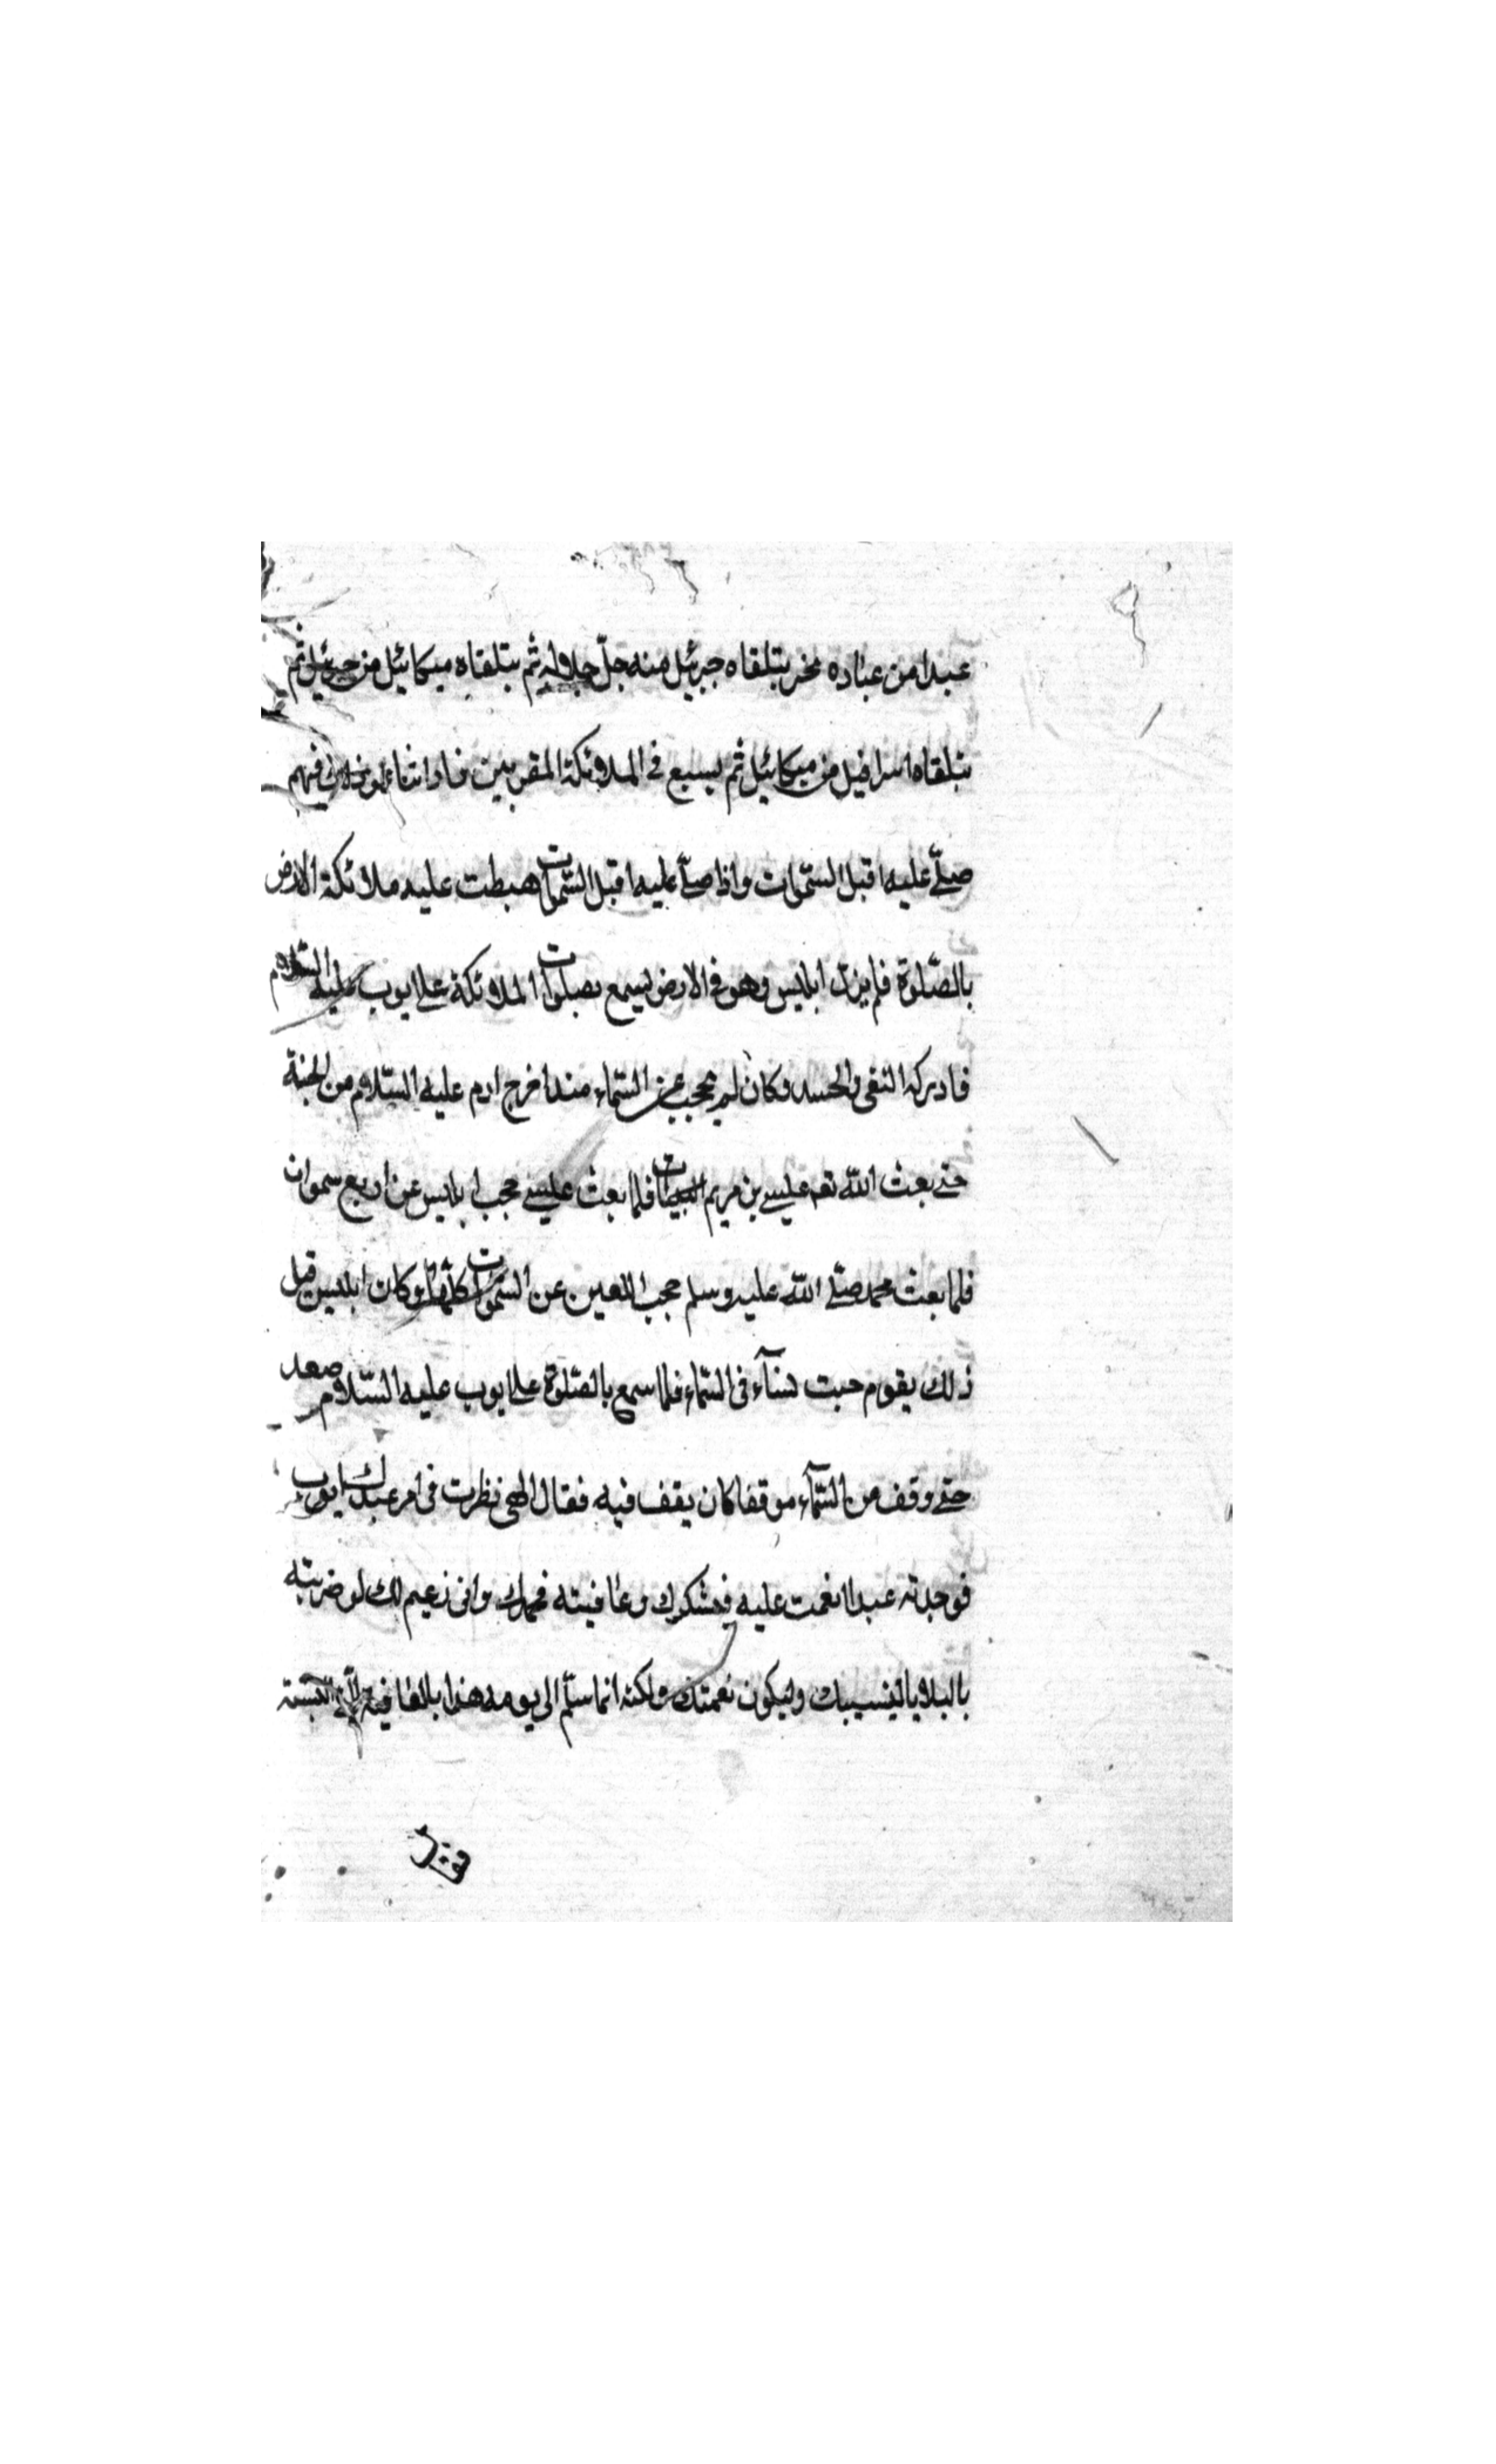 عبدا من عباده بخير يتلقاه جبرئيل منه جلّ جلاله ثم يتلقاه ميكائيل من جبرئيل ثم
يتلقاه اسرافيل من ميكائيل ثم يسبع في الملائكة المقربين فاذا فيهم
صلّے عليه اقبل السّموات واذا صلّے عليه اقبل السّموات هبطت عليه ملائكة الارض
بالصّلوة فلم يزل ابليس وهو في الارض ليسمع بصلوات الملائكة على ايوب عليه السّلام
فادركه البغى والحسد وكان لم يحجب عن السّماء منذ اخرج ادم عليه السّلام من الجنة
حتے بعث الله تعه عيسے بن مريم فلما بعث عيسے حجب ابليس عن اربع سموات
فلما بعث محمد صلّے الله عليه وسلم حجب اللعين عن السّموات كلّها وكان ابليس قبل
ذلك يقوم حيث شآء فى السّماء فلما سمع بالصّلوة على ايوب عليه السّلام صعد
حتے وقف من السّمآء موقفا كان يقف فيه فقال الهى نظرت فى امر عبدك ايوب
فوجدته عبدا انعمت عليه فشكرك وعافيته فحمدك وانى زعيم لك لو ضربته
بالبلايا لينسينك وليكون نعمتك ولكنه انما سلّم الى يومه هذا بالعافية